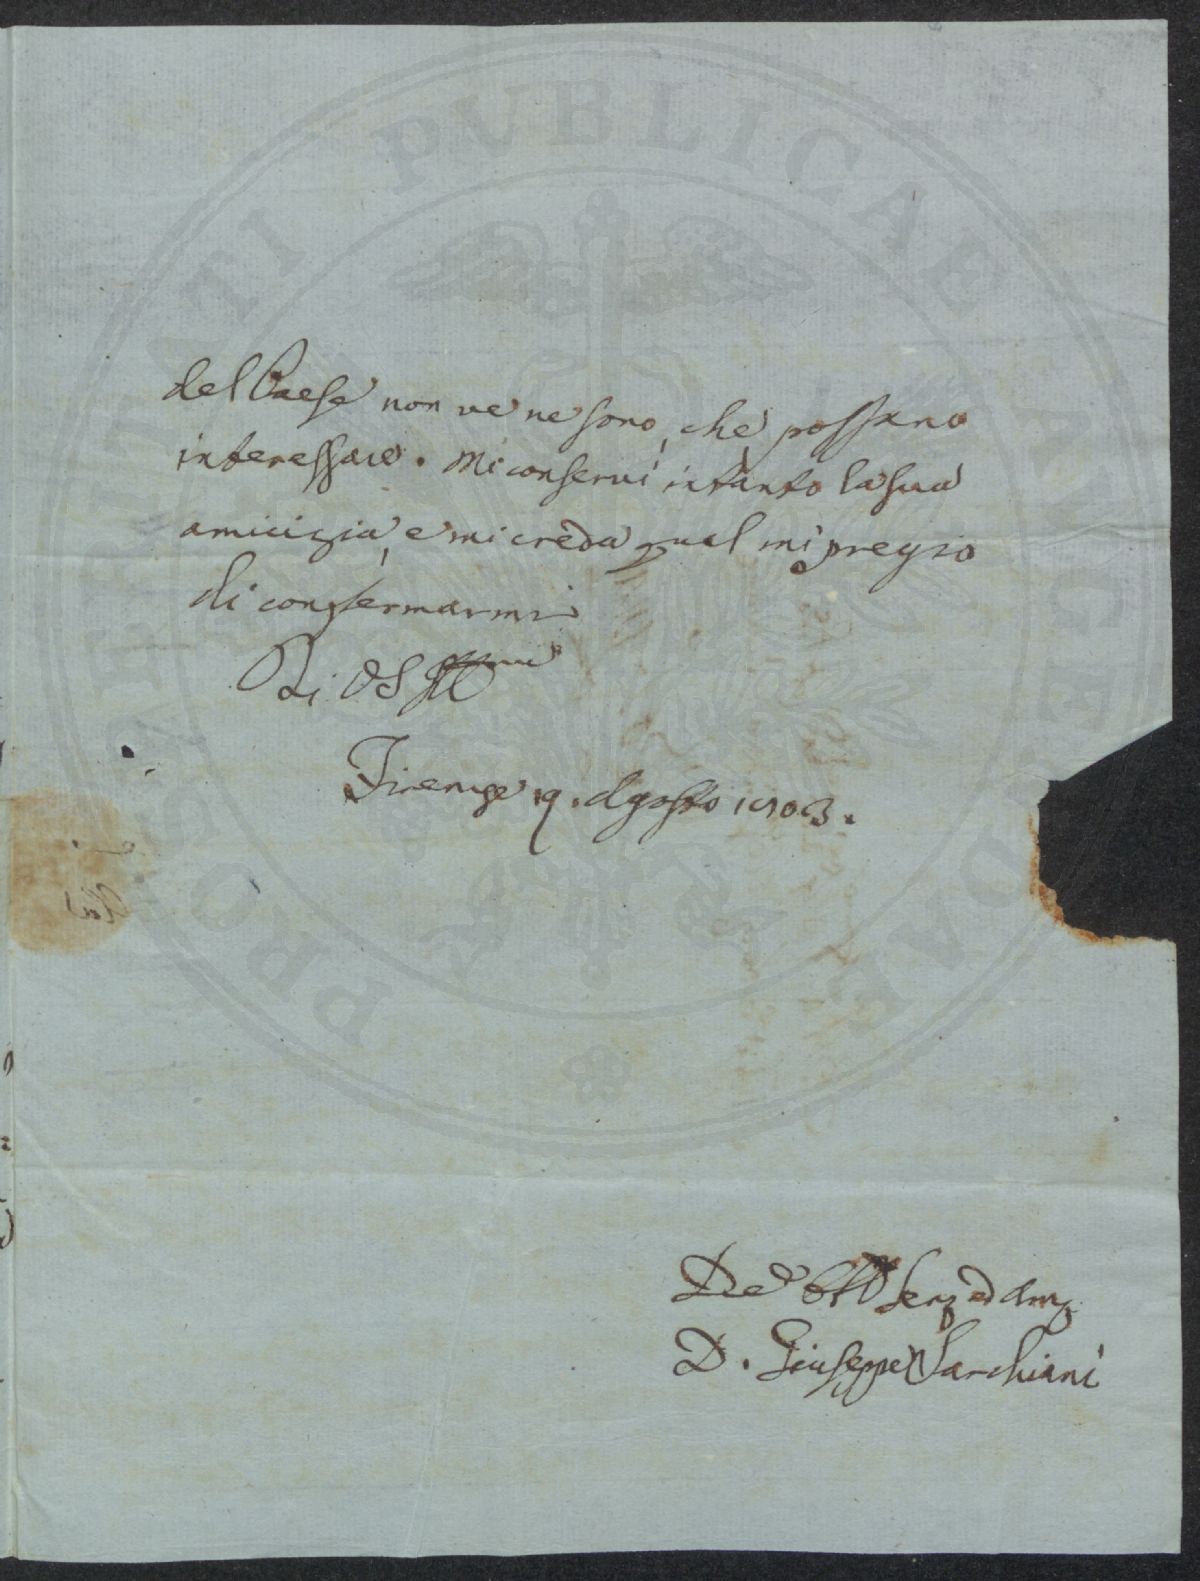 PROSPERITATI PUBLICAE AUGENDAE
del Paese non ve ne sono, che possano
interessare. Mi conservi intanto la sua
amicizia, e mi creda qual mi pregio
di confermarmi
Di VS
Firenze 9. Agosto 1803.
Dev Obb Serv ed Am
D. Giuseppe Sarchiani